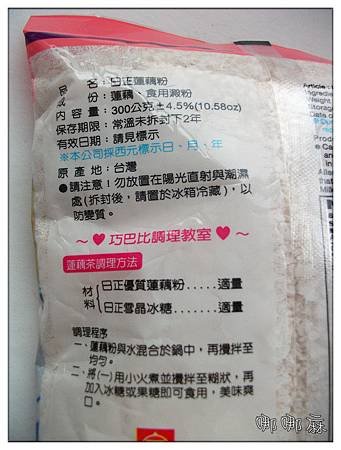 品 名：日正蓮藕粉
成 份：蓮藕、食用澱粉
內 容 量：300公克±4.5%(10.58oz)
保存期限：常溫未拆封下2年
有效日期：請見標示
※本公司採西元標示日、月、年
原 產 地：台灣
●請注意！勿放置在陽光直射與潮濕
處(拆封後，請置於冰箱冷藏)，以
防變質。
～♥巧巴比調理教室♥～
蓮藕茶調理方法
材料
日正優質蓮藕粉......適量
日正雪晶冰糖........適量
調理程序
一、蓮藕粉與水混合於鍋中，再攪拌至
均勻。
二、將(一)用小火煮並攪拌至糊狀，再
加入冰糖或果糖即可食用，美味爽
口。
Article :
Ingredie
Weight
Storage
Date of
Produ
娜娜麻